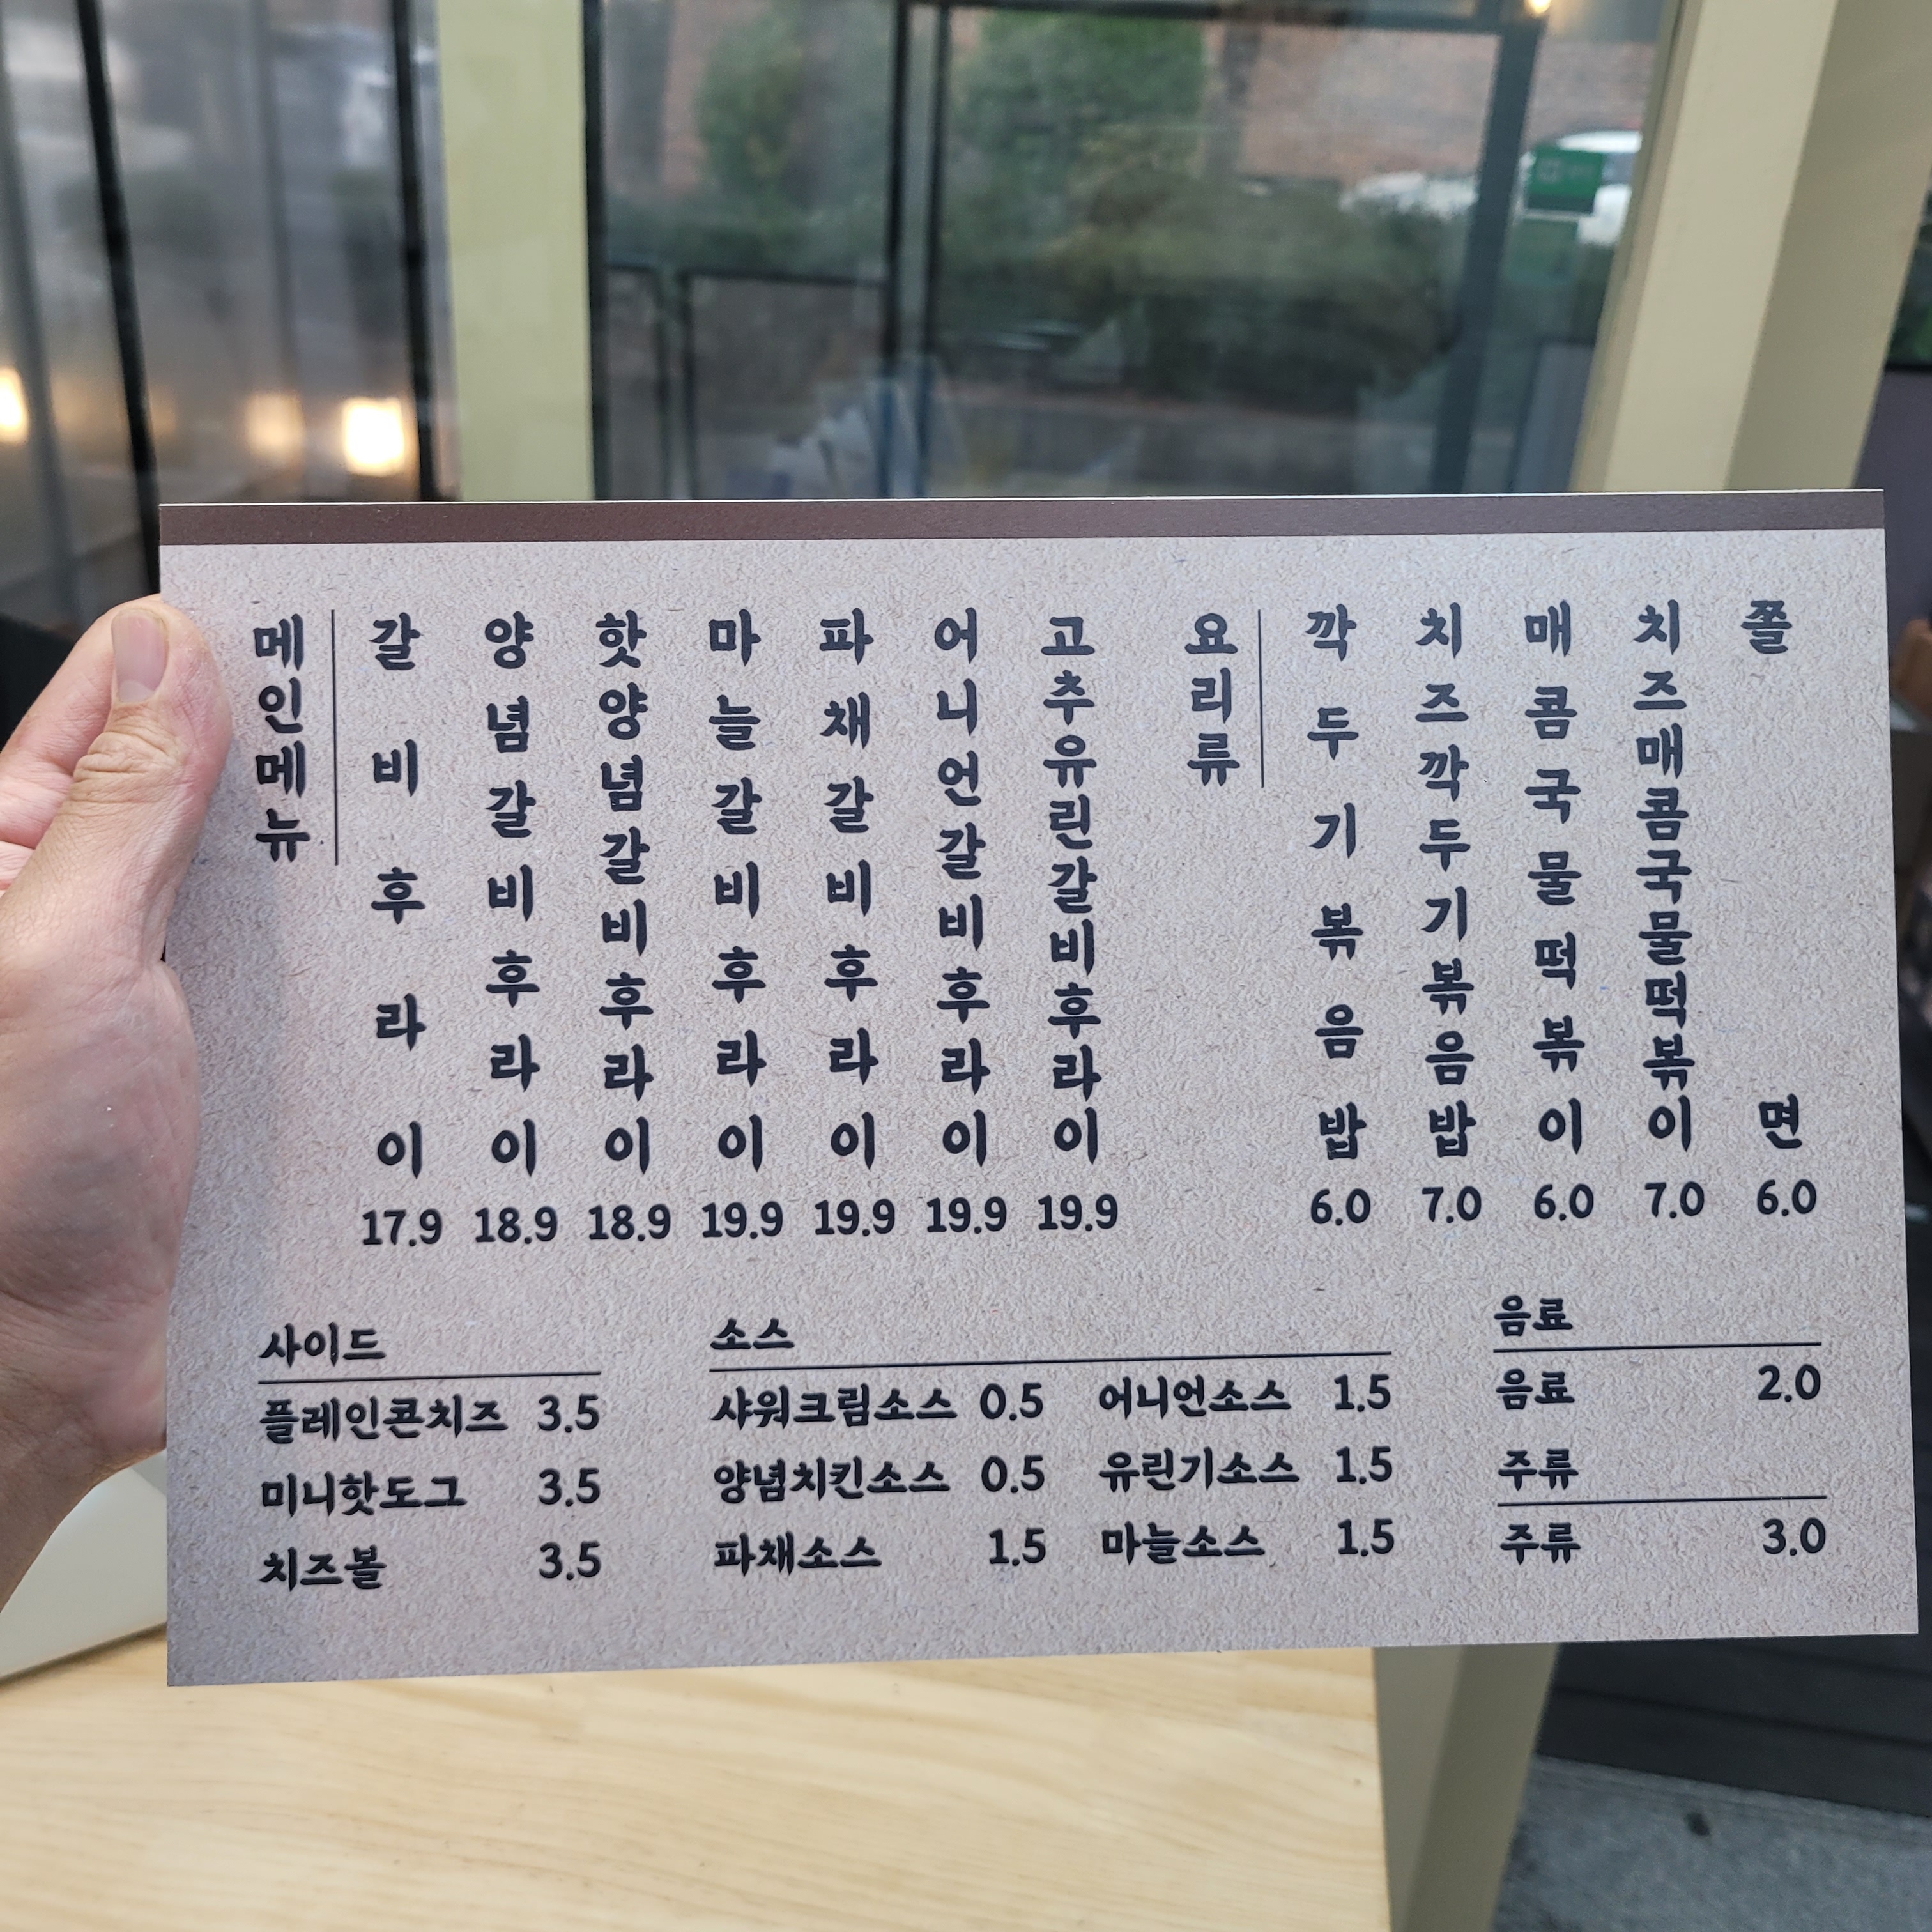 메인메뉴
갈비후라이 17.9
양념갈비후라이 18.9
핫양념갈비후라이 18.9
마늘갈비후라이 19.9
파채갈비후라이 19.9
어니언갈비후라이 19.9
고추유린갈비후라이 19.9
요리류
깍두기볶음밥 6.0
치즈깍두기볶음밥 7.0
매콤국물떡볶이 6.0
치즈매콤국물떡볶이 7.0
쫄면 6.0
사이드
플레인콘치즈 3.5
미니핫도그 3.5
치즈볼 3.5
소스
샤워크림소스 0.5
양념치킨소스 0.5
파채소스 1.5
어니언소스 1.5
유린기소스 1.5
마늘소스 1.5
음료
음료 2.0
주류
주류 3.0